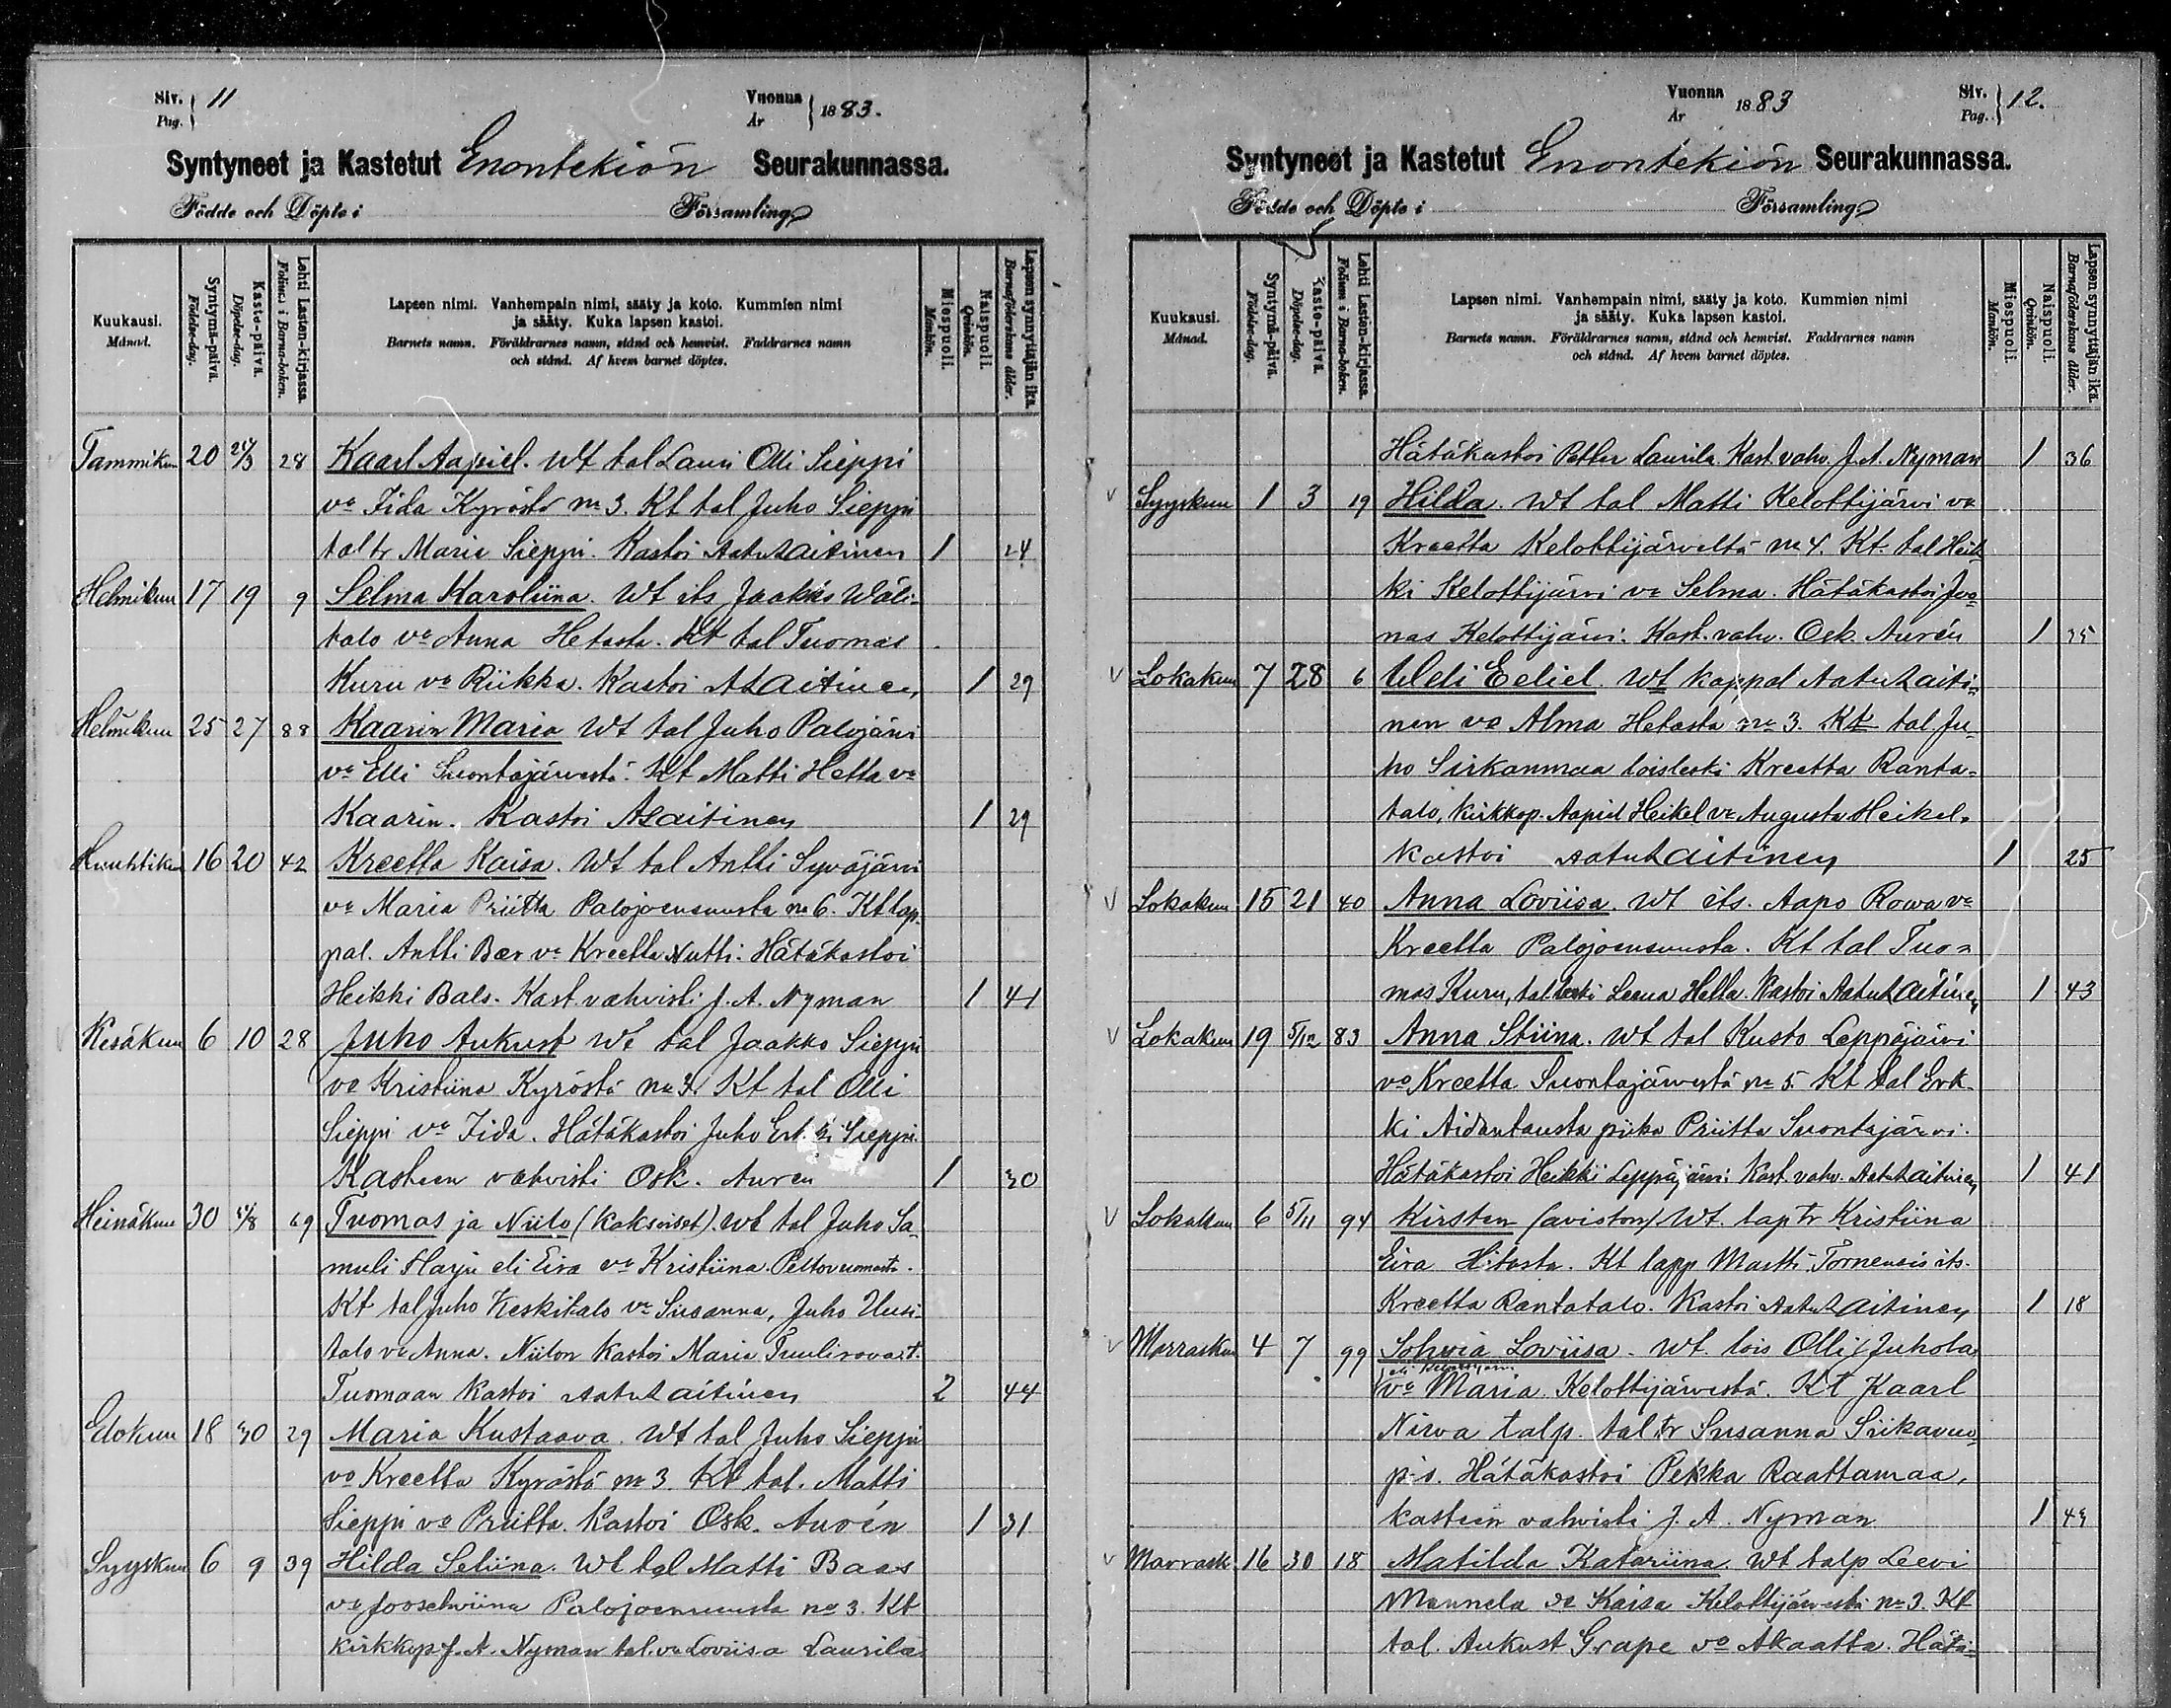 Siv. Pag. 11
Vuonna År 1883.
Syntyneet ja Kastetut Enontekiön Seurakunnassa.
Födde och Döpte i Församling
Kuukausi. Månad.
Syntymä-päivä. Födelse-dag.
Kaste-päivä. Döpelse-dag.
Lehti Lasten-kirjassa. Folium i Barna-boken.
Lapsen nimi. Vanhempain nimi, sääty ja koto. Kummien nimi
ja sääty. Kuka lapsen kastoi.
Barnets namn. Föräldrarnes namn, stånd och hemvist. Faddrarnes namn
och stånd. Af hvem barnet döptes.
Miespuoli. Mankön.
Naispuoli. Qvinkön.
Lapsen synnyttäjän ikä. Barnaföderskans ålder.
Tammikuu 20 28 Kaarl Aapiel. Wt tal Lauri Olli Sieppi
va Iida Kyröstä no 3. Kt tal Juho Sieppi
tal tr Maria Sieppi. Kastoi Aatu Laitinen 1 24
Helmikuu 17 19 9 Selma Karoliina. Wt its Jaakko Wäli-
talo va Anna Hetasta. Kt tal Tuomas
Kuru va Riikka. Kastoi A Laitinen 1 29
Helmikuu 25 27 88 Kaarin Maria Wt tal Juho Palojärvi
va Elli Suontajärvestä. Kt Matti Hetta va
Kaarin. Kastoi A Laitinen 1 29
Huuhtikuu 16 20 42 Kreetta Kaisa. Wt tal Antti Syväjärvi
va Maria Priitta Palojoensuusta no 6. Kt lap-
pal. Antti Bær va Kreetta Nutti. Hätäkastoi
Heikki Bals. Kast. vahvisti J. A. Nyman 1 41
Kesäkuu 6 10 28 Juho Aukust Wt tal Jaakko Sieppi
va Kristiina Kyröstä no 3. Kt tal Olli
Sieppi va Iida. Hätäkastoi Juho Erkki Sieppi.
Kasteen vahvisti Osk. Auren 1 30
Heinäkuu 30 5/8 69 Tuomas ja Niilo (kaksoiset). Wt tal Juho Sa-
muli Harju eli Eira va Kristiina Peltovuomasta.
Kt tal Juho Keskitalo va Susanna, Juho Uusi-
talo va Anna. Niilon kastoi Maria Puulirova it.
Tuomaan kastoi Aatu Laitinen 2 44
Elokuu 18 30 29 Maria Kustaava. Wt tal Juho Sieppi
va Kreetta Kyröstä no 3. Kt tal. Matti
Sieppi va Priitta. Kastoi Osk. Aurén 1 31
Syyskuu 6 9 39 Hilda Seliina. Wt tal Matti Baas
va Joosehviina Palojoensuusta no 3. Kt
kirkkop J. A. Nyman tal. va Loviisa Laurila
Vuonna År 1883
Siv. Pag. 12.
Syntyneet ja Kastetut Enontekiön Seurakunnassa.
Födde och Döpte i Församling
Kuukausi. Månad.
Syntymä-päivä. Födelse-dag.
Kaste-päivä. Döpelse-dag.
Lehti Lasten-kirjassa. Folium i Barna-boken.
Lapsen nimi. Vanhempain nimi, sääty ja koto. Kummien nimi
ja sääty. Kuka lapsen kastoi.
Barnets namn. Föräldrarnes namn, stånd och hemvist. Faddrarnes namn
och stånd. Af hvem barnet döptes.
Miespuoli. Mankön.
Naispuoli. Qvinkön.
Lapsen synnyttäjän ikä. Barnaföderskans ålder.
Hätäkastoi Petter Laurila. Kast. vahv. J. A. Nyman 1 36
Syyskuu 1 3 19 Hilda. Wt tal Matti Kelottijärvi va
Kreetta Kelottijärveltä no 4. Kt. tal Heik-
ki Kelottijärvi va Selma. Hätäkastoi Joo-
nas Kelottijärvi. Kast. vahv. Osk. Aurén 1 35
Lokakuu 7 28 6 Uleli Eeliel. Wt kappal Aatu Laiti-
nen va Alma Hetasta no 3. Kt tal Ju-
ho Sirkanmaa loisleski Kreetta Ranta-
talo, kirkkop. Aapiel Heikel va Augusta Heikel.
Kastoi Aatu Laitinen 1 25
Lokakuu 15 21 40 Anna Loviisa. Wt its. Aapo Rowa va
Kreetta Palojoensuusta. Kt tal Tuo-
mas Kuru, tal leski Leena Hetta. Kastoi Aatu Laitinen 1 43
Lokakuu 19 5/12 83 Anna Stiina. Wt tal Kusto Leppäjärvi
va Kreetta Suontajärvestä no 5. Kt tal Erk-
ki Aidantausta piika Priitta Suontajärvi.
Hätäkastoi Heikki Leppäjärvi. Kast. vahv. Aatu Laitinen 1 41
Lokakuu 6 5/11 94 Kirsten (avioton) Wt. lap tr Kristiina
Eira Hetasta. Kt lapp Martti Tornensis its.
Kreetta Rantatalo. Kastoi Aatu Laitinen 1 18
Marraskuu 4 7 99 Sohvia Loviisa. Wt. lois Olli Juhola
eli Kelottijärvi
va Maria Kelottijärvestä. Kt Kaarl
Nirva talp. tal tr Susanna Siikavuo-
pio. Hätäkastoi Pekka Raattamaa,
kasteen vahvisti J. A. Nyman 1
Marrask. 16 30 18 Matilda Katariina. Wt talp Leevi
Mannela va Kaisa Kelottijärvestä no 3. Kt
tal. Aukust Grape va Akaatta. Hätä-